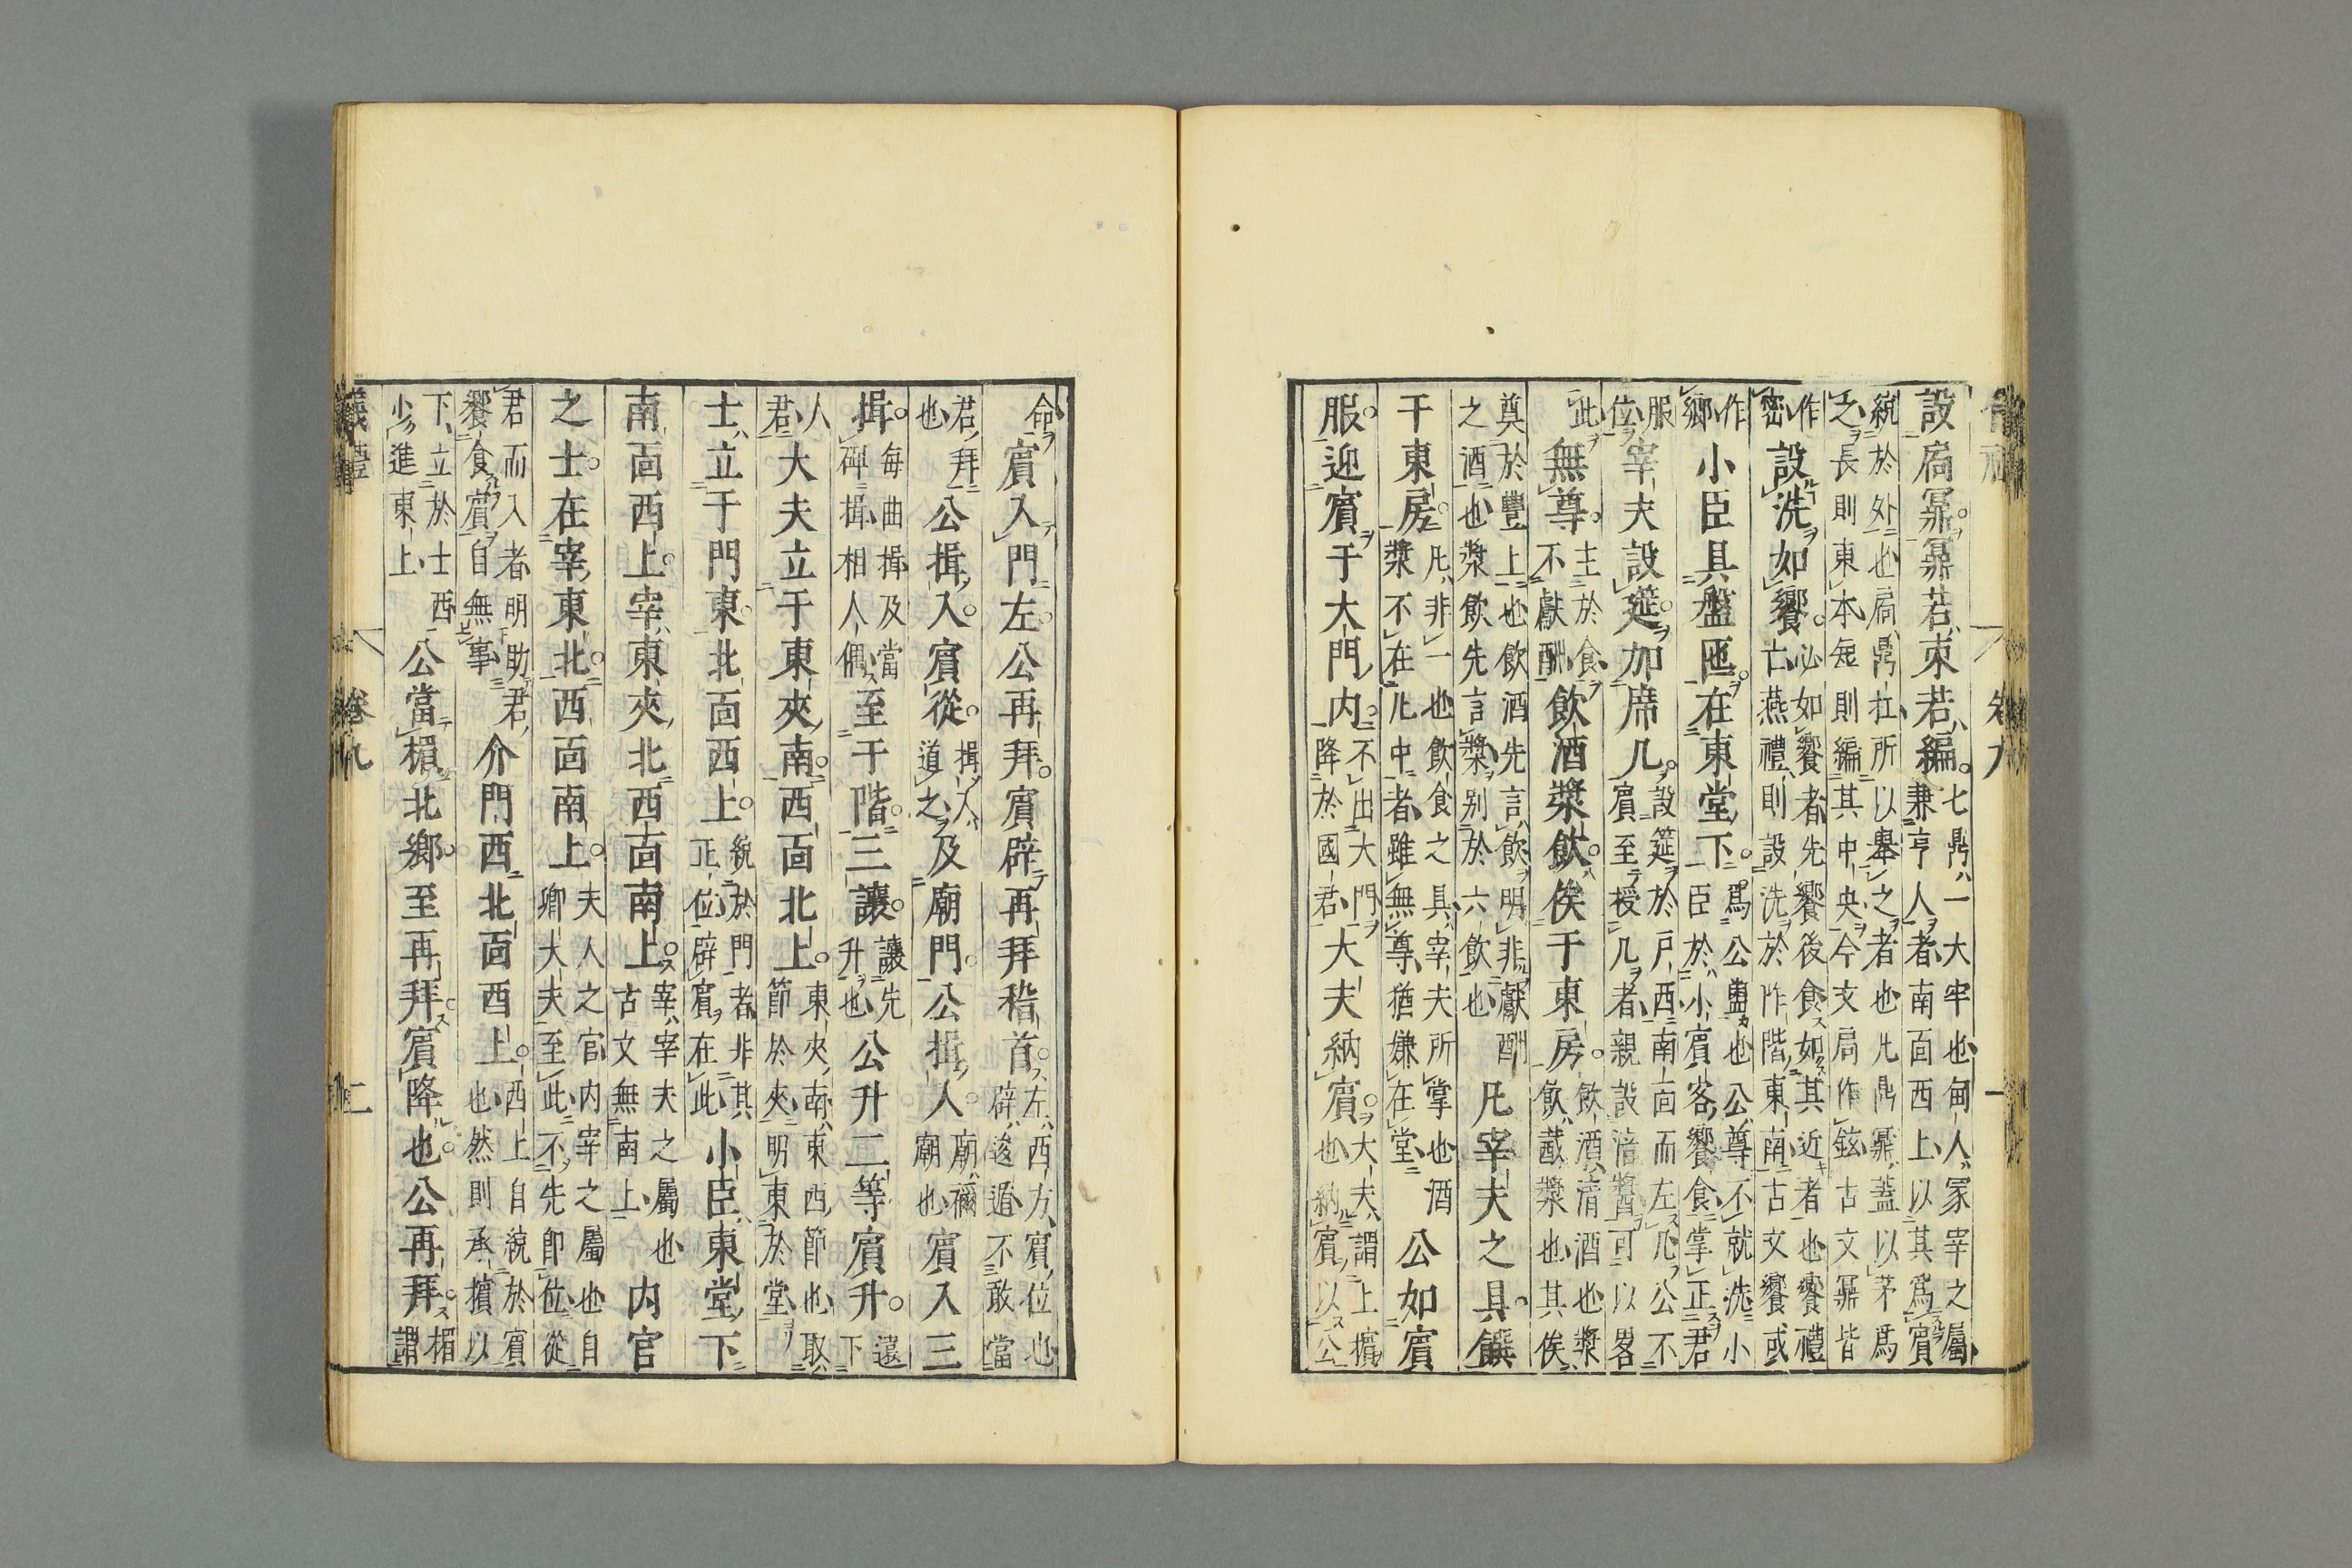 設扃鼏鼏若束若編七鼎一大牢也甸人冢宰之屬兼亨人者南面西上以其爲賓
統於外也扃鼎扛所以舉之者也凡鼎鼏蓋以茅爲之長則束本短則編其中央今文扃作鉉古文鼏皆
作密設洗如饗必如饗者先饗後食如其近者也饗禮亡燕禮則設洗於阼階東南古文饗或
作鄉小臣具盤匜在東堂下爲公盥也公尊不就洗小臣於小賓客饗食掌正君
服位宰夫設筵加席几設筵於戶西南面而左几公不賓至授几者親設湆醬可以畧
此無尊主於食不獻酬飲酒漿飲俟于東房飲酒清酒也漿飲酨漿也其俟
奠於豐上也飲酒先言飲明非獻酬之酒也漿飲先言漿別於六飲也凡宰夫之具饌
于東房凡非一也飲食之具宰夫所掌也酒漿不在凡中者雖無尊猶嫌在堂公如賓
服迎賓于大門内不出大門降於國君大夫納賓大夫謂上擯也納賓以公
命賓入門左公再拜賓辟再拜稽首左西方賓位也辟逡遁不敢當
君拜也公揖入賓從揖入道之及廟門公揖入廟禰廟也賓入三
揖每曲揖及當碑揖相人偶至于階三讓讓先升也公升二等賓升遠下
人君大夫立于東夾南西面北上東夾南東西節也取節於夾明東於堂
士立于門東北面西上統於門者非其正位辟賓在此小臣東堂下
南面西上宰東夾北西面南上宰宰夫之屬也古文無南上内官
之士在宰東北西面南上夫人之官内宰之屬也自卿大夫至此不先即位從
君而入者明助君饗食賓自無事介門西北面西上西上自統於賓也然則承擯以
下立於士西少進東上公當楣北鄉至再拜賓降也公再拜楣謂
儀禮 卷九 二